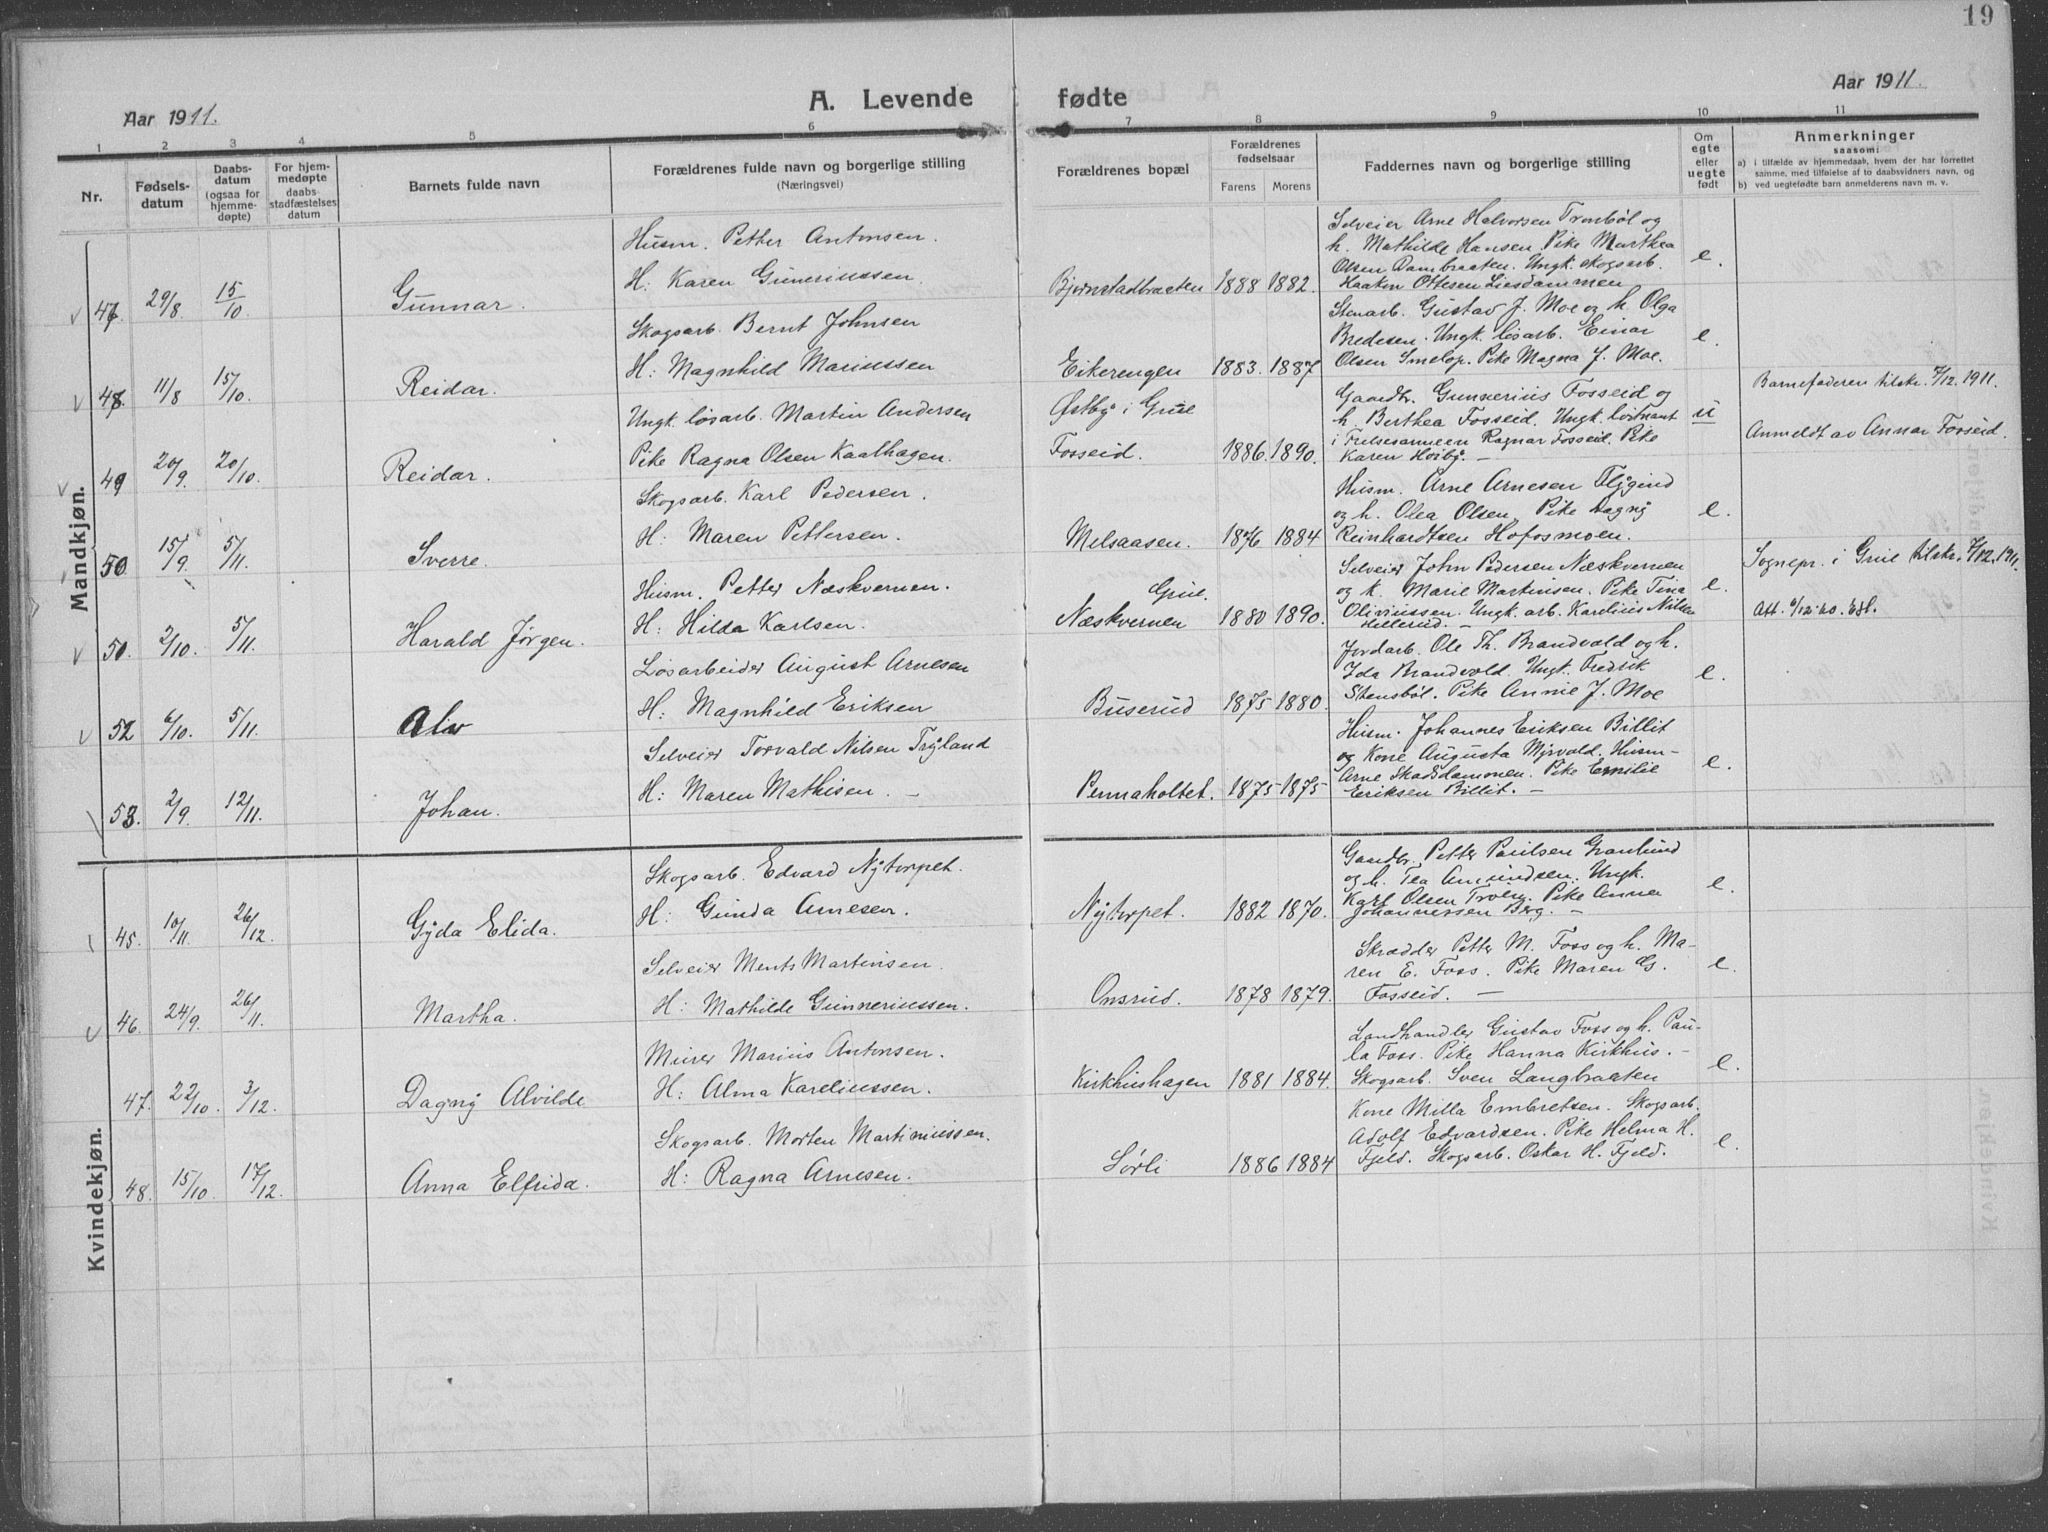 19
Aar 1911.
A. Levende
fødte
Aar 1911.
1 2 3 4 5 6 7 8 9 10 11
Nr.
Fødsels-
datum
Daabs-
datum
(ogsaa for
hjemme-
døpte)
For hjem-
medøpte
daabs-
stadfæstelses
datum
Barnets fulde navn
Forældrenes fulde navn og borgerlige stilling
(Næringsvei)
Forældrenes bopæl
Forældrenes
fødselsaar
Farens Morens
Faddernes navn og borgerlige stilling
Om
egte
eller
uegte
født
Anmerkninger
saasom:
a) i tilfælde av hjemmedaab, hvem der har forrettet
samme, med tilføielse af to daabsvidners navn, og
b) ved uegtefødte barn anmelderens navn m. v.
Mandkjøn.
47. 29/8 15/10 Gunnar.
Husm. Petter Antonsen.
H: Karen Guneriussen.
Bjørnstadbraaten 1888 1882.
Selveier Arne Halvorsen Tronbøl og
h. Mathilde Hansen. Pike Marthea
Olsen Dambraaten. Ungk. skogsarb.
Haakon Ottesen Liesdammen
e.
48. 11/8 15/10. Reidar.
Skogsarb. Bernt Johnsen
H: Magnhild Mariussen
Eikerengen 1883. 1887
Stenarb. Gustav J. Moe og h. Olga
Bredesen. Ungk. løsarb. Einar
Olsen Smelop. Pike Magna J. Moe.
e.
49 20/9. 20/10. Reidar.
Ungk. løsarb. Martin Andersen
Pike Ragna Olsen Kaalhagen.
Østby i Grue
Fosseid. 1886. 1890.
Gaardbr. Gunnerius Fosseid og
h. Berthea Fosseid. Ungk. løitnant
i Frelsesarmeen Ragnar Fosseid. Pike
Karen Hoiby. —
u
Barnefaderen tilskr. 7/12. 1911.
Anmeldt av Annar Fosseid.
50 15/9. 5/11. Sverre.
Skogsarb. Karl Pedersen.
H: Maren Pettersen.
Melsaasen. 1876 1884
Husm. Arne Arnesen Flygind
og h. Olea Olsen. Pike Dagny
Reinhardtsen Hofosmoen.
e.
50. 2/10. 5/11. Harald Jørgen.
Husm. Petter Næskvernen.
H: Hilda Karlsen.
Grue.
Næskvernen 1880 1890.
Selveier John Pedersen Næskvernen
og k. Marie Martinsen. Pike Tina
Oliviussen. Ungk. arb. Karelius Nilsen
Hillerud. —
e.
Sognepr. i Grue tilskr. 7/12. 1911.
Att. 6/12.40. Edl.
52 6/10. 5/11. Alv
Løsarbeider August Arnesen
H: Magnhild Eriksen
Buserud 1875 1880.
Jordarb. Ole Th. Brandvold og h.
Ida Brandvold. Ungk. Fredrik
Stensbøl. Pike Annie J. Moe
e.
53. 2/9. 12/11. Johan.
Selveier Torvald Nilsen Tryland
H: Maren Mathisen. —
Pennaholtet. 1875 1875
Husm. Johannes Eriksen Billit
og Kone Augusta Myrvold. Husm-
Arne Skadsdammen. Pike Emilie
Eriksen Billit. —
e.
Kvindekjøn.
45. 10/11. 26/12. Gyda Elida.
Skogsarb. Edvard Nytorpet.
H: Gunda Arnesen.
Nytorpet. 1882 1870.
Gaardbr. Petter Paulsen Granlund
og h. Tea Amundsen. Ungk.
Karl Olsen Troen. Pike Anna
Johannessen Berg. —
e.
46. 24/9. 26/11. Martha.
Selveier Ments Martinsen.
H: Mathilde Gunneriussen.
Onsrud. 1878 1879.
Skrædder Petter M. Foss og h. Ma-
ren E. Foss. Pike Maren G.
Fosseid. —
e.
47. 22/10. 3/12. Dagny Alvilde
Murer Marius Antonsen.
H: Alma Kareliussen.
Kirkhushagen 1881 1884.
Landhandler Gustav Foss og h. Pau-
la Foss. Pike Hanna Kirkhus. —
Skogsarb. Sven Langbraaten
e.
48. 15/10. 17/12. Anna Elfrida.
Skogsarb. Morten Martiniussen.
H: Ragna Arnesen.
Sørli 1886 1884
Kone Milla Embretsen. Skogsarb.
Adolf Edvardsen. Pike Helma H.
Fjeld. Skogsarb. Oskar H. Fjeld.
e.